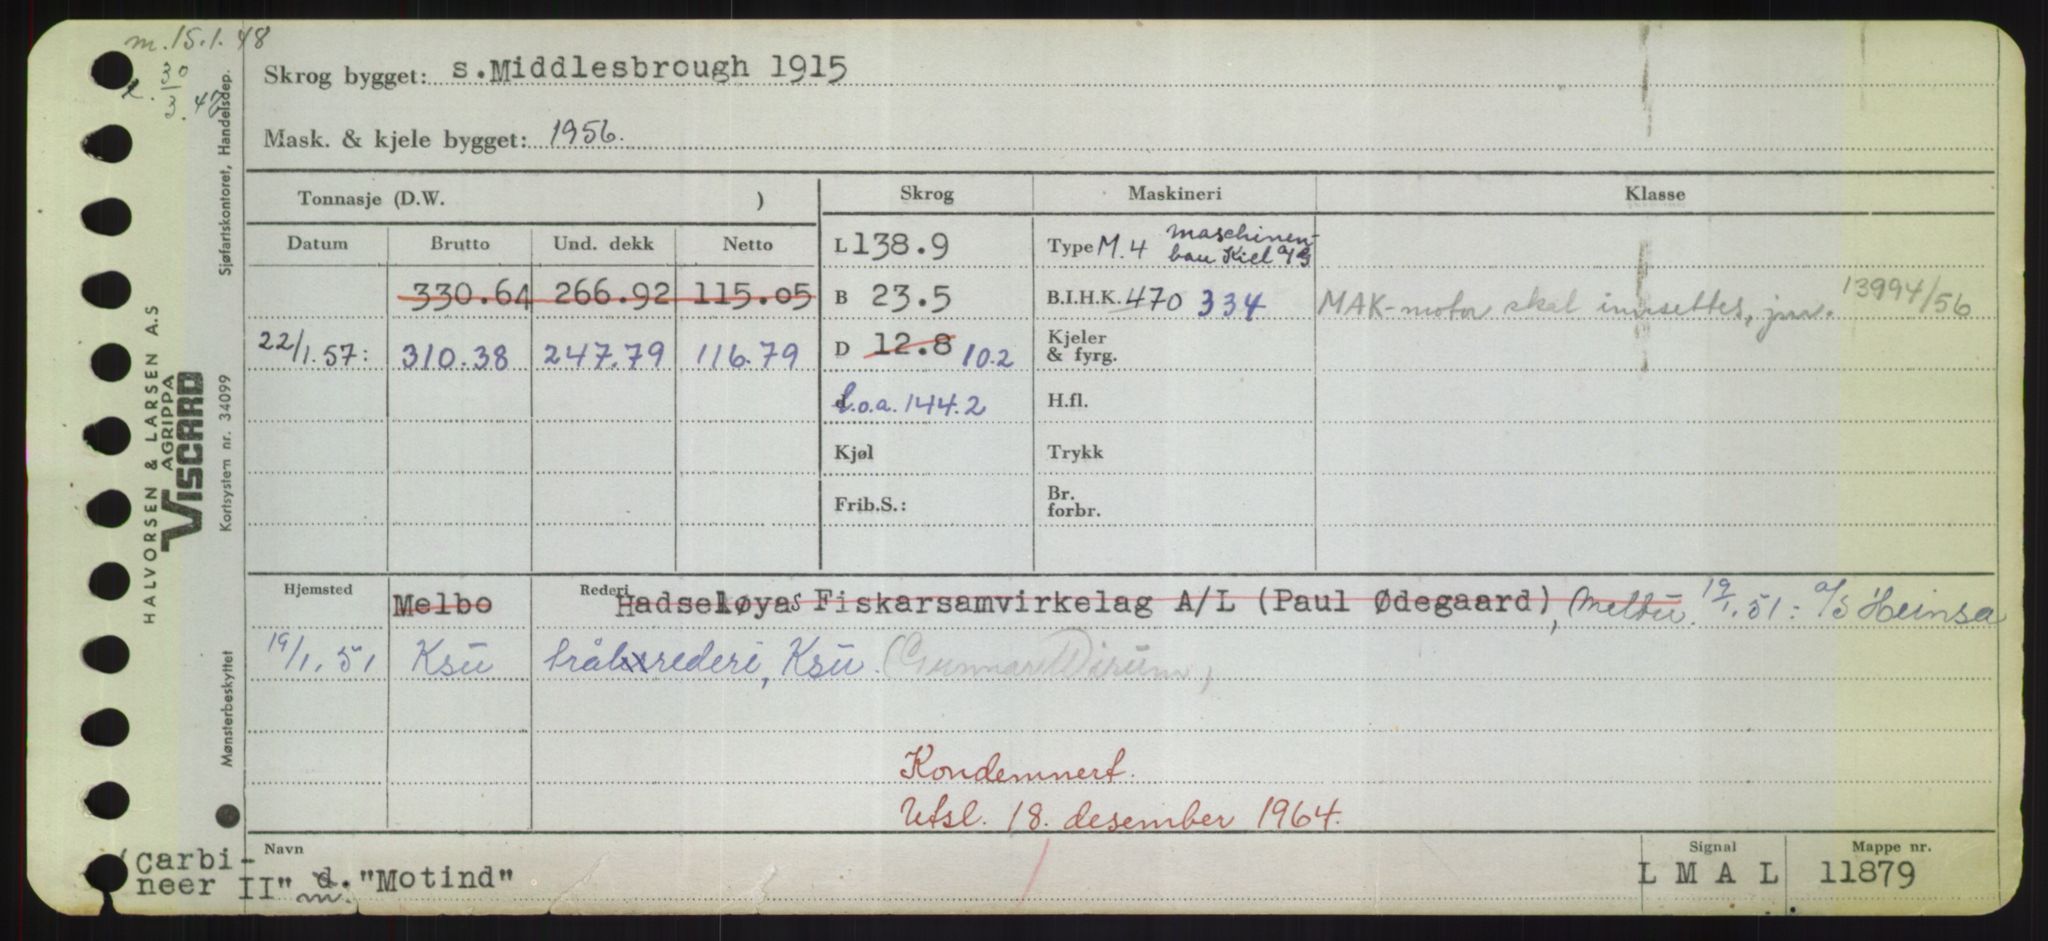 m. 15.1.48
30
3. 47
Skrog bygget: s.Middlesbrough 1915
Mask. & kjele bygget: 1956.
Tonnasje (D.W. )
Skrog
Maskineri
Klasse
Datum Brutto Und. dekk Netto
L 138.9
Type M.4 Maschinen-
bau Kiel a/g
330.64 266.92 115.05
B 23.5
B.I.H.K. 470 334
MAK-motor skal innsettes, jnr. 13994/56
22/1.57: 310.38 247.79 116.79
D 12.8 10.2
Kjeler
& fyrg.
l.o.a. 144.2
H.fl.
Kjøl
Trykk
Frib.S.:
Br.
forbr.
Hjemsted Melbo
Rederi Hadseløyas Fiskarsamvirkelag A/L (Paul Ødegaard), Melbu. 19/1.51: a/s Heinsa
19/1.51 Ksu trålrederi, Ksu. (Gunnar Dirum)
Kondemnert.
Utsl. 18. desember 1964.
Navn
Signal
Mappe nr.
"Carbi-
neer II" d. "Motind"
m.
L M A L
11879
HALVORSEN & LARSEN A.S
AGRIPPA
VISCARD
Mønsterbeskyttet
Kortsystem nr. 34099
Sjøfartskontoret, Handelsdep.